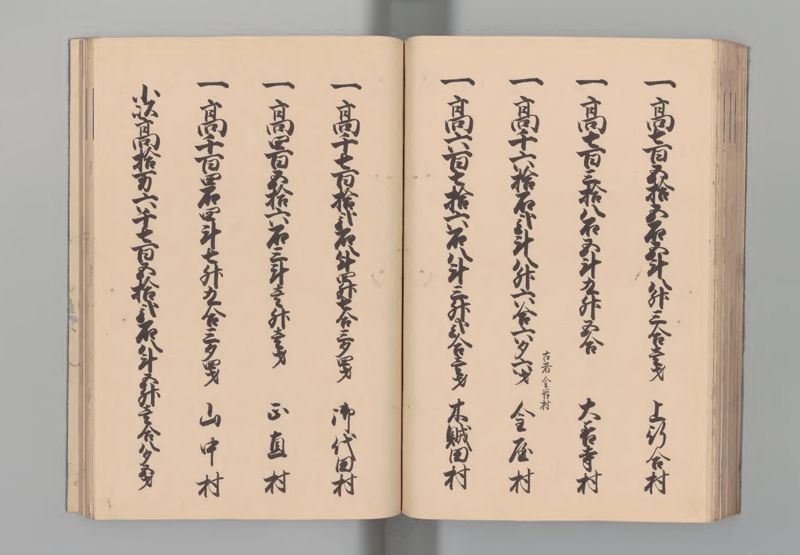 一 高七百五拾五石五斗八升三合壱才 上行合村
一 高七百三拾八石五斗九升五合 大善寺村
古者金谷村
一 高千六拾石弐斗八升六合六夕六才 金屋村
一 高六百七拾六石八斗三升弐合壱才 木賊田村
一 高千七百拾弐石八斗四升七合三夕四才 御代田村
一 高四百五拾六石三斗壱升壱才 正直村
一 高千百四石四斗七升九合三夕四才 山中村
小以高拾万六千七百五拾弐石八斗五升壱合八夕